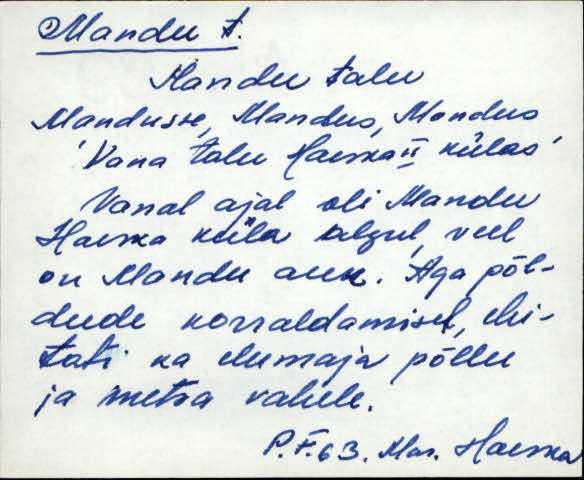 Mandu t.
Mandu talu
Mandusse, Mandus, Mandus
'Vana talu Haeska II külas'
Vanal ajal oli Mandu
Haeska küla algul, veel
on Mandu auk. Aga põl-
dude korraldamisel, ehi-
tati ka elumaja põllu
ja metsa vahele.
P.F. 63. Mar. Haeska